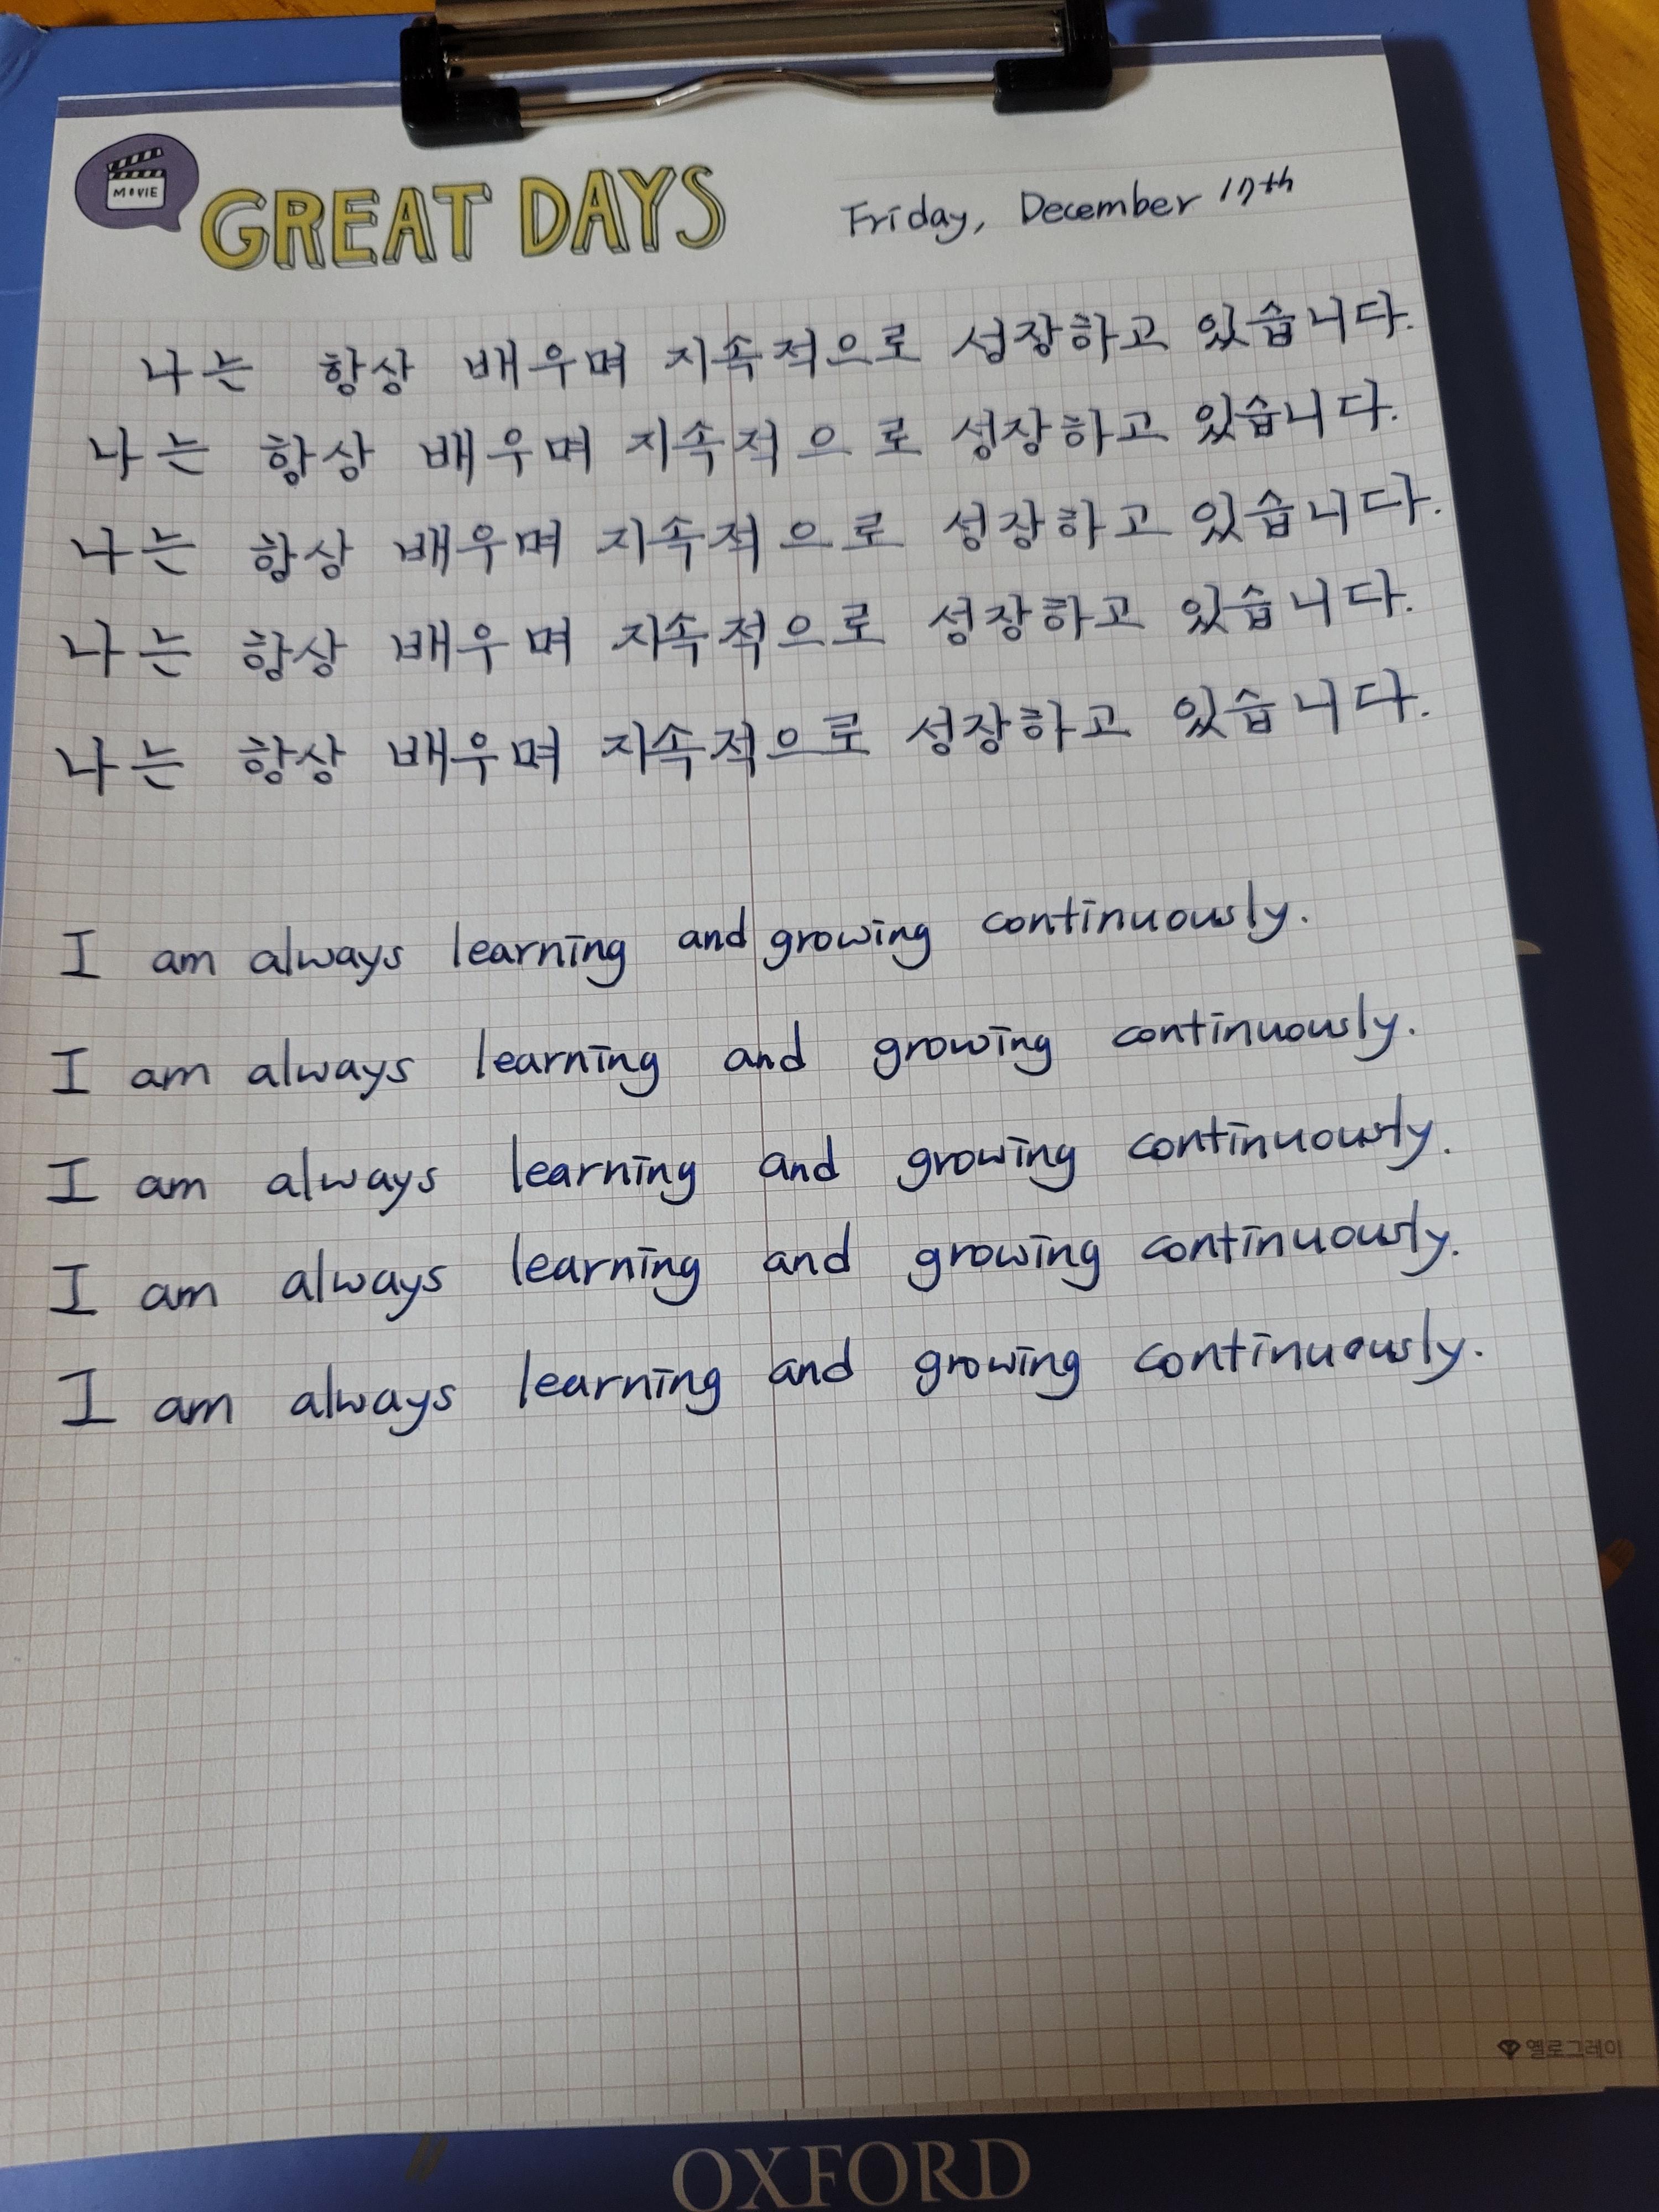 MOVIE
GREAT DAYS
Friday, December 17th
나는 항상 배우며 지속적으로 성장하고 있습니다.
나는 항상 배우며 지속적으로 성장하고 있습니다.
나는 항상 배우며 지속적으로 성장하고 있습니다.
나는 항상 배우며 지속적으로 성장하고 있습니다.
나는 항상 배우며 지속적으로 성장하고 있습니다.
I am always learning and growing continuously.
I am always learning and growing continuously.
I am always learning and growing continuously.
I am always learning and growing continuously.
I am always learning and growing continuously.
옐로그레이
OXFORD